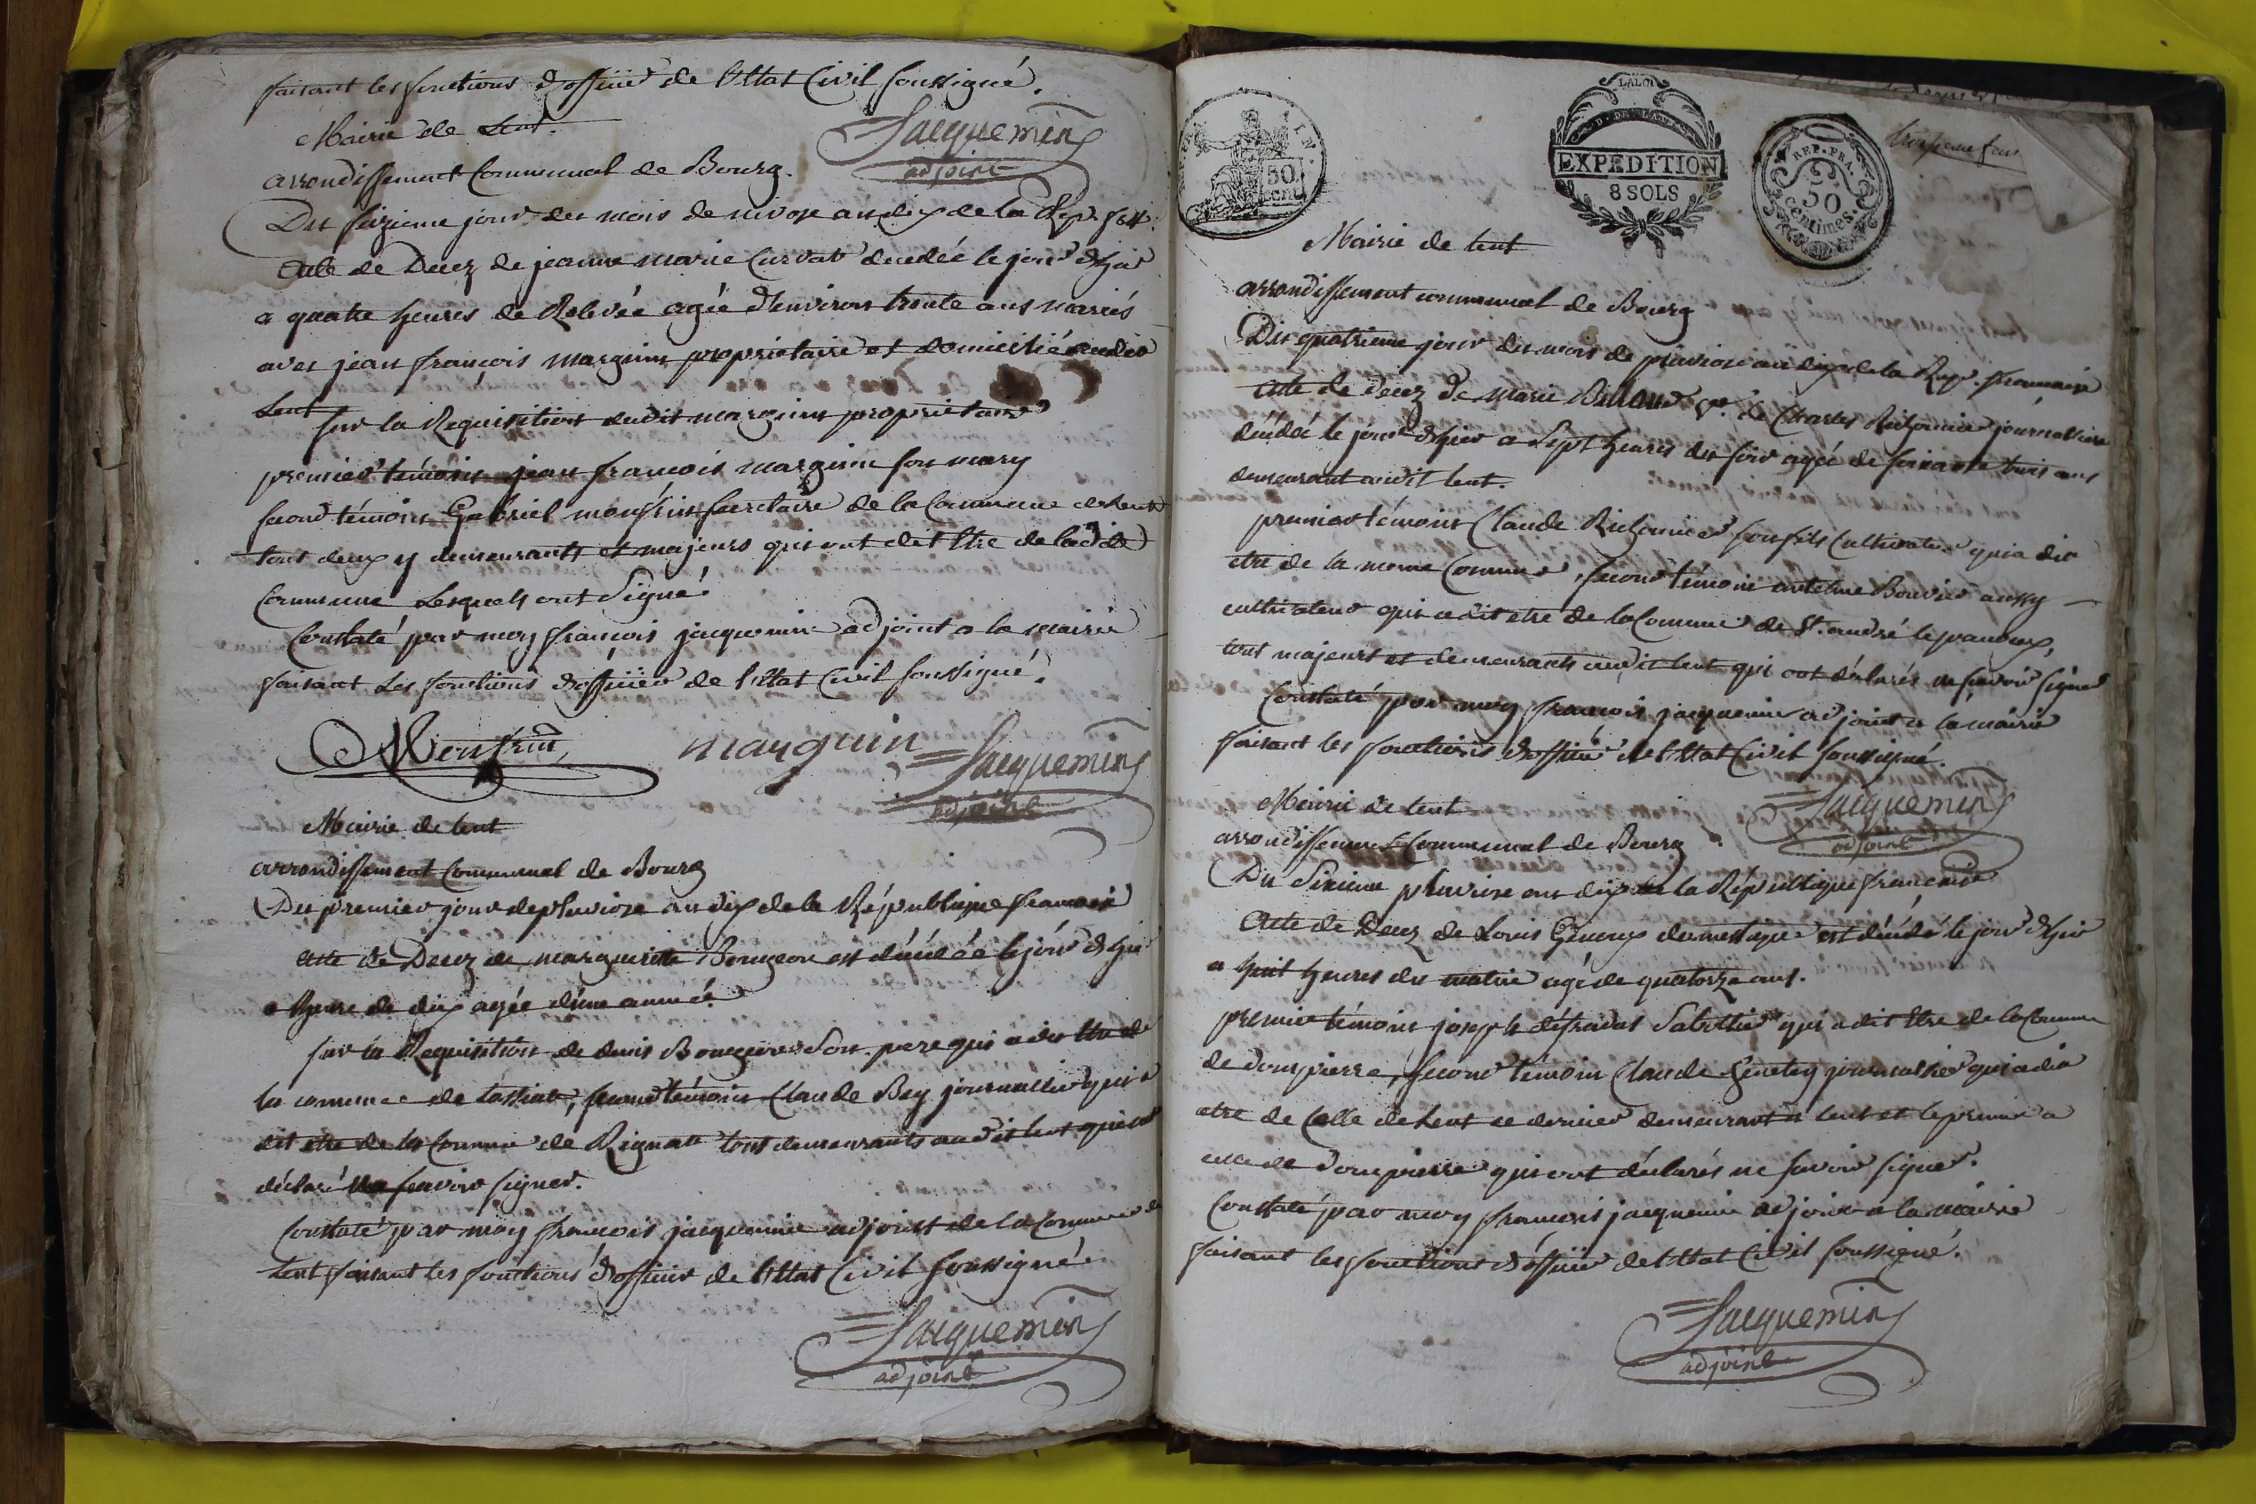 faisant les fonctions d'officier de l'Etat Civil soussigné.
Jacquemin
adjoint
Mairie de Lent.
arrondissement Communal de Bourg.
Du seizieme jour du mois de nivose an dix de la Rép. fse.
acte de Decez de jeanne marie Curvat decedée le jour d'hier
a quatre heures de Relevée agée d'environ trente ans mariés
avec jean françois marguin propriétaire et domicilié audit
Lent
sur la Requisition dudit marguin propriétaire
premier témoin jean françois marguin son mary
second témoin Gabriel monfrin secretaire de la Commune de Lent
tout deux y demeurants et majeurs qui ont dit Etre de ladite
Commune Lesquels ont Signé.
Constaté par moy françois jacquemin adjoint a la mairie
faisant Les fonctions d'officier de l'Etat Civil soussigné.
Monfrin marguin Jacquemin
adjoint
Mairie de lent
arrondissement Communal de Bourg
Du premier jour de pluviose an dix de la République francaise
acte de Decez de marguerite Bourgeon est décédée le jour d'hier
a heure de dix agée d'une année
sur la Requisition de denis Bourgeon Son pere qui a dit Etre de
la commune de , second témoin Claude Bey journallier qui a
dit etre de la Commune de Rignat tous demeurants audit lent qui ont
déclaré ne scavoir signer.
Constaté par moy françois jacquemin adjoint de la Commune de
Lent faisant les fonctions d'officier de l'Etat Civil soussigné
Jacquemin
adjoint
50
cent
LA LOI
EXPEDITION
8 SOLS
REP. FRA.
50
centimes.
Mairie de lent
arrondissement communal de Bourg
Du quatrieme jour du mois de pluviose an dix de la Rép. francaise
acte de decez de Marie Billoud ve. de Charles journaliere
décédée le jour d'hier a Sept heures du soir agée de soixante trois ans
demeurant audit lent.
premier témoin Claude son fils Cultivateur qui a dit
etre de la meme Commune, second témoin antelme Bouvier aussy
cultivateur qui a dit etre de la Commune de St. andré le panoux,
tous majeurs et demeurants audit lent qui ont déclarés ne scavoir signer
Constaté par moy françois jacquemin adjoint a la mairie
faisant les fonctions d'officier de l'Etat Civil soussigné.
Jacquemin
adjoint
Mairie de lent
arrondissement Communal de Bourg
Du Sixieme pluviose an dix de la République francaise
Acte de Decez de Louis Genoux domestique est décédé le jour d'hier
a huit heures du matin agé de quatorze ans.
premier témoin joseph Sabottier qui a dit Etre de la Commune
de dompierre, second témoin Claude journallier qui a dit
etre de Celle de Lent ce dernier demeurant a lent et le premier a
celle de dompierre qui ont déclarés ne scavoir signer.
Constaté par moy françois jacquemin adjoint a la mairie
faisant les fonctions d'officier de l'Etat Civil soussigné.
Jacquemin
adjoint